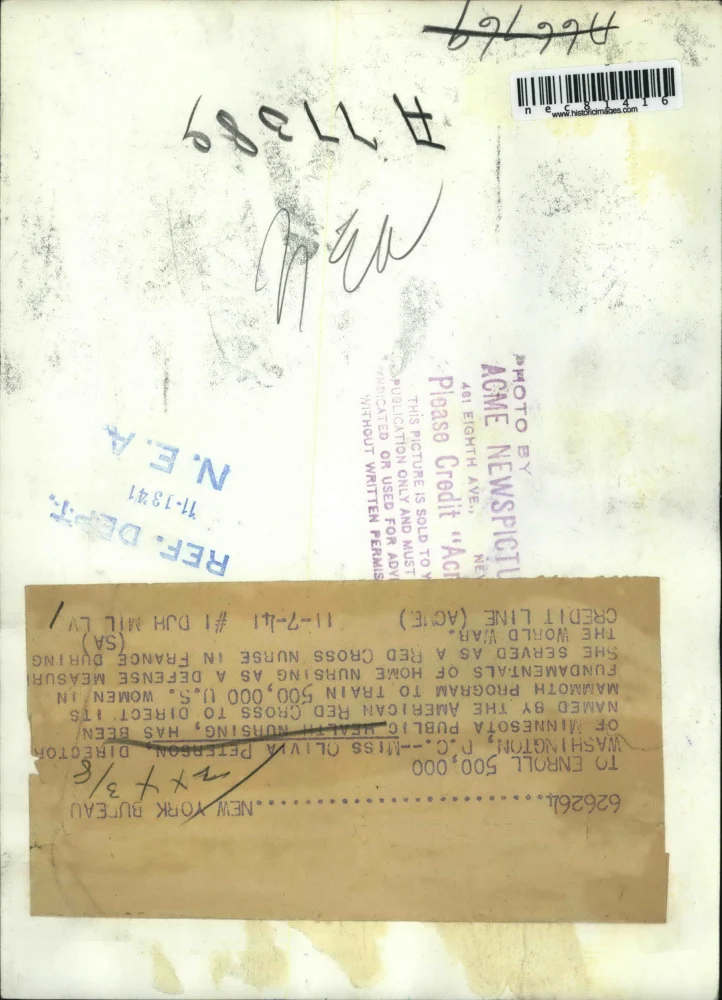 A66769
nec81416
www.historicimages.com
A 77389
NEA
PHOTO BY
ACME NEWSPICTU
461 EIGHTH AVE., NE
Please Credit "Acm
THIS PICTURE IS SOLD TO Y
PUBLICATION ONLY AND MUST
SYNDICATED OR USED FOR ADV
WITHOUT WRITTEN PERMIS
REF. DEPT.
11-1341
N. E. A
626264....NEW YORK BUREAU
TO ENROLL 500,000
WASHINGTON, D.C.--MISS OLIVIA PETERSON, DIRECTOR
OF MINNESOTA PUBLIC HEALTH NURSING, HAS BEEN
NAMED BY THE AMERICAN RED CROSS TO DIRECT ITS
MAMMOTH PROGRAM TO TRAIN 500,000 U.S. WOMEN IN
FUNDAMENTALS OF HOME NURSING AS A DEFENSE MEASURE
SHE SERVED AS A RED CROSS NURSE IN FRANCE DURING
THE WORLD WAR. (SA)
CREDIT LINE (ACME) 11-7-41 #1 DJH MIL LV